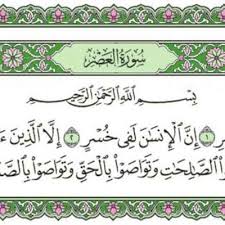 سُورَةُ العَصْرِ
بِسْمِ اللَّهِ الرَّحْمَٰنِ الرَّحِيمِ
۝١ إِنَّ الْإِنسَانَ لَفِى خُسْرٍ ۝٢ إِلَّا الَّذِينَ
الصَّالِحَاتِ وَتَوَاصَوْا بِالْحَقِّ وَتَوَاصَوْا